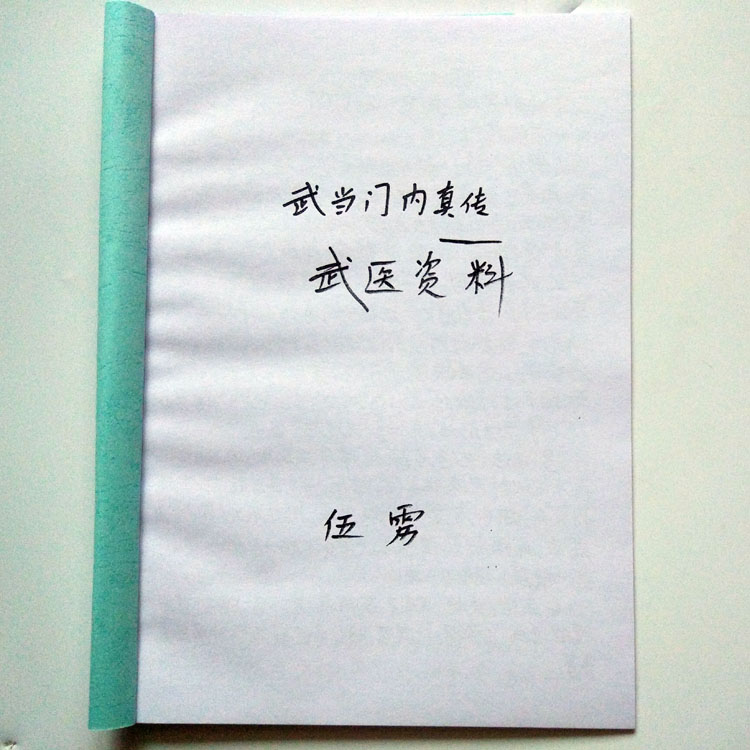 武当门内真传
武医资料
伍